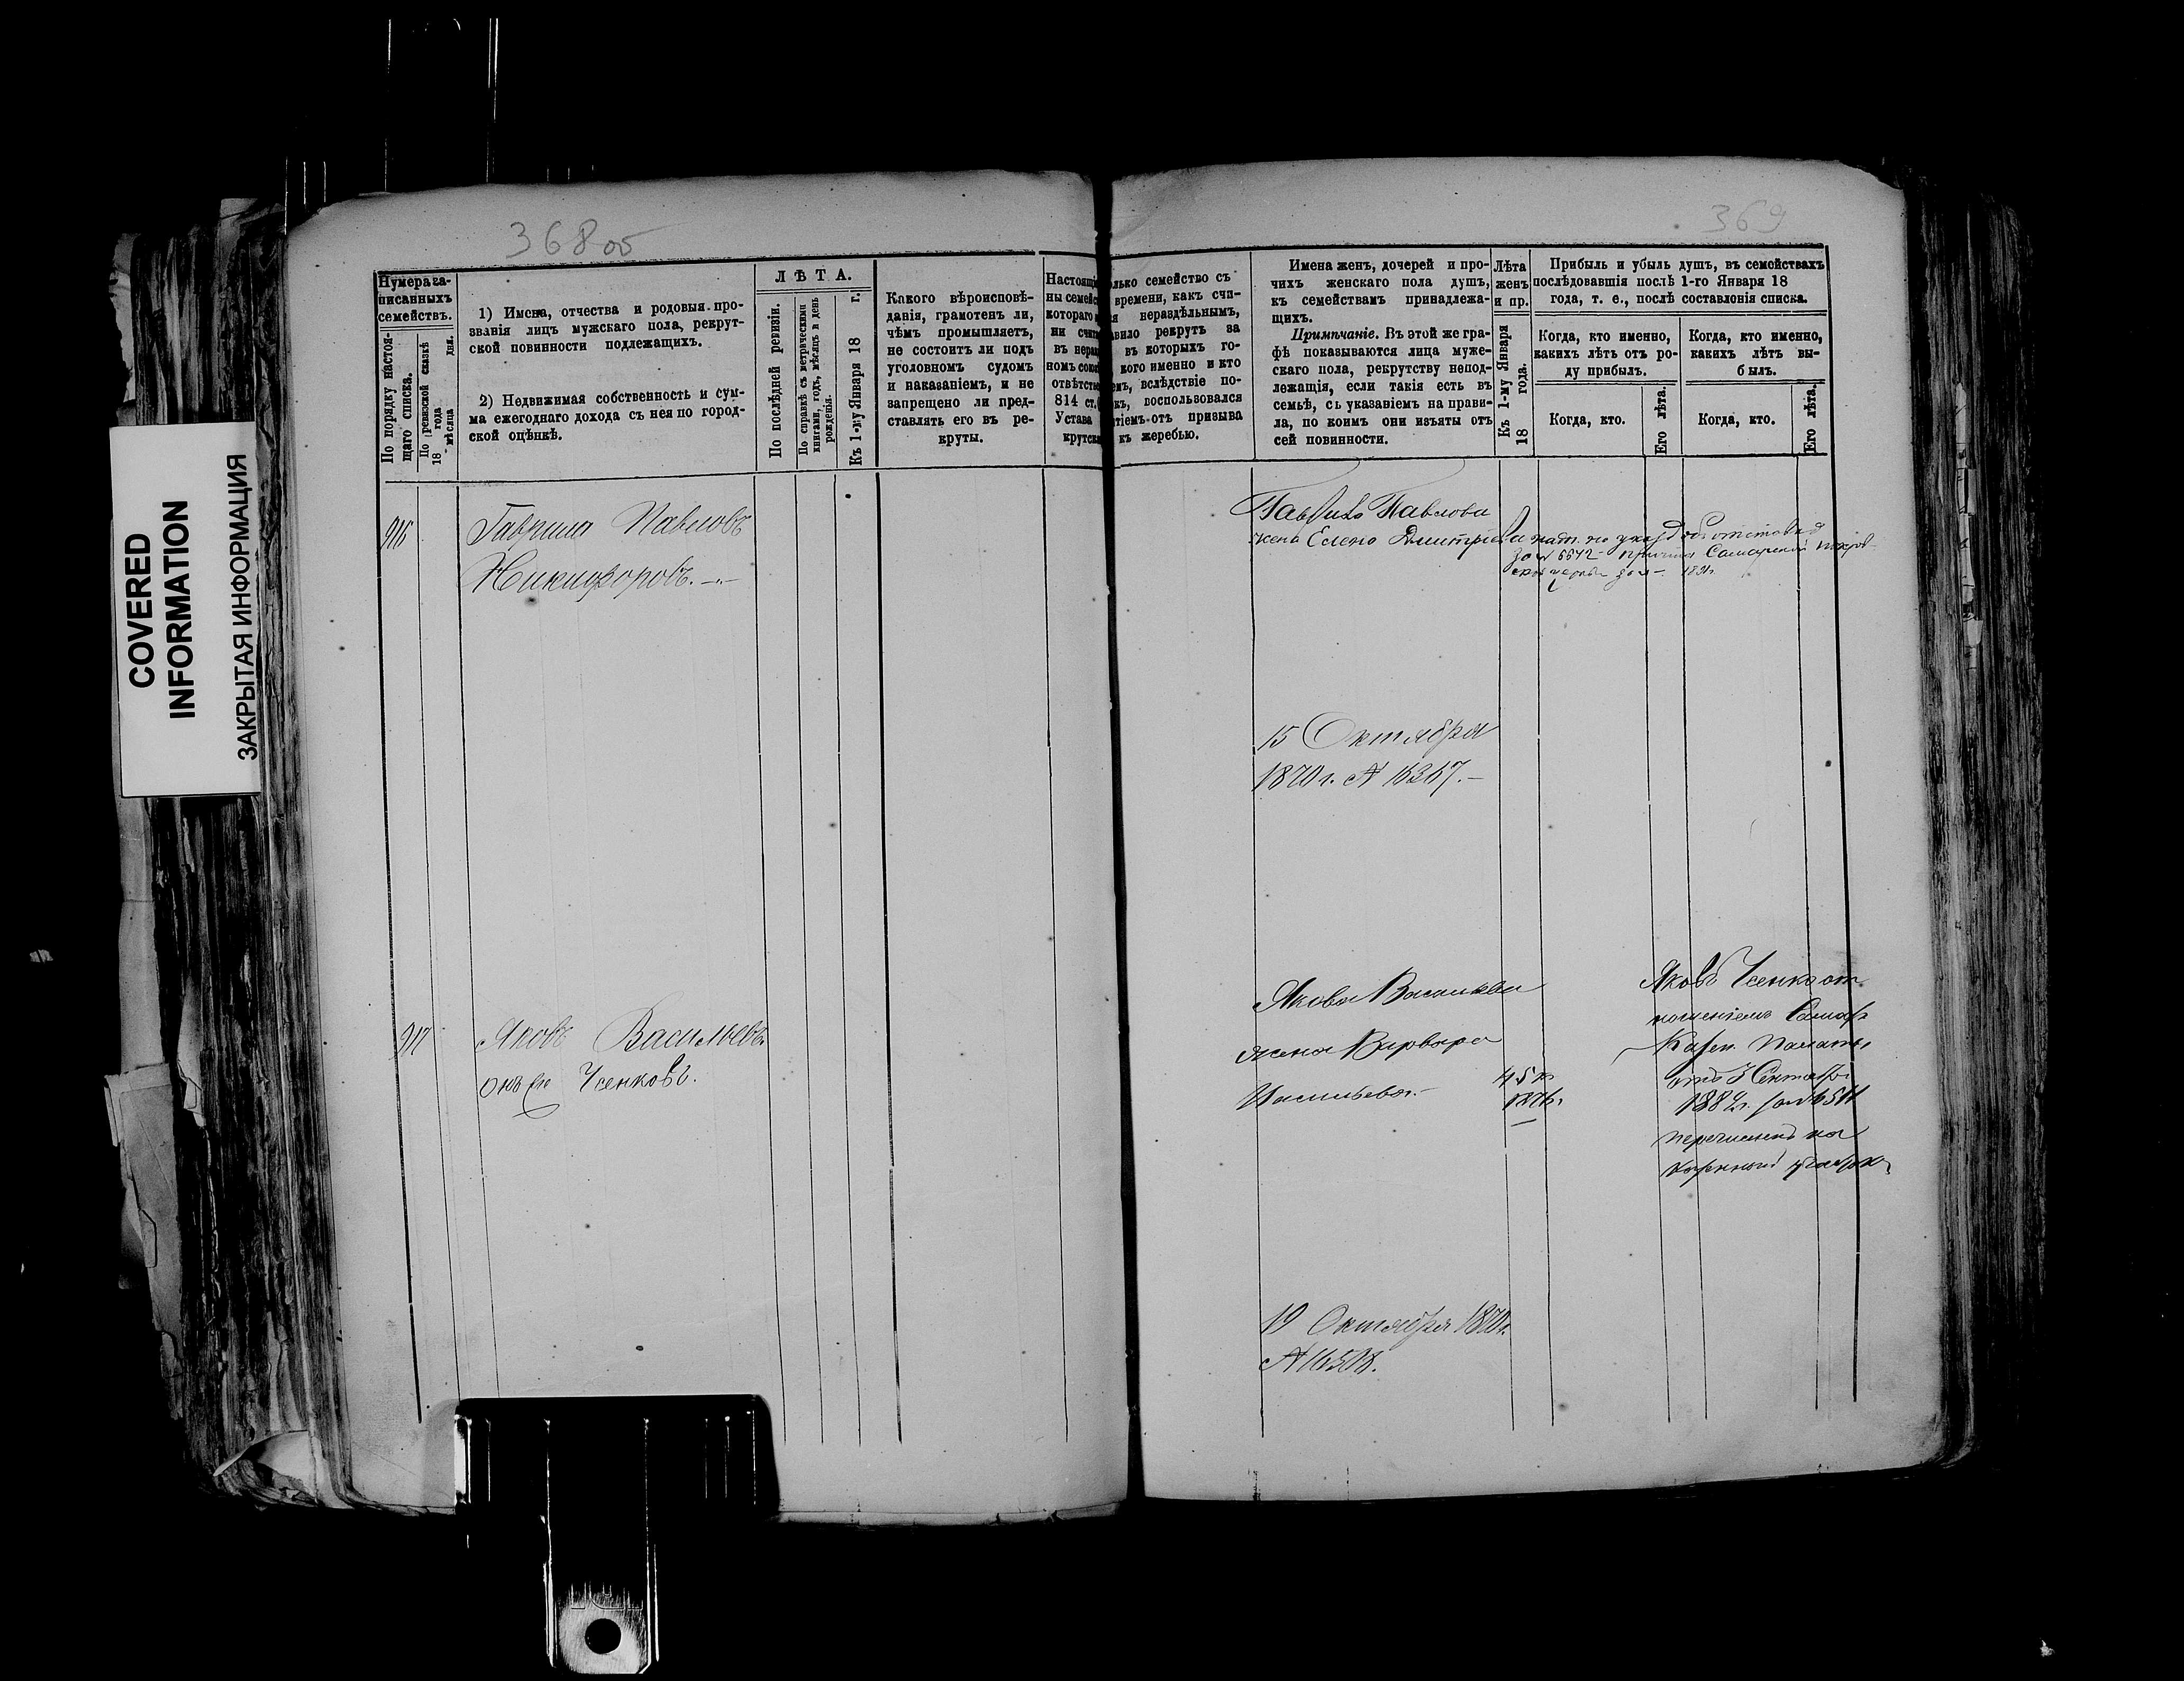 COVERED
INFORMATION
ЗАКРЫТАЯ ИНФОРМАЦИЯ
368об
369
Нумера за-
писанныхъ
семействъ.
По порядку настоя-
щаго списка.
По ревизской сказкѣ
18 года
мѣсяца дня.
1) Имена, отчества и родовыя про-
званія лицъ мужскаго пола, рекрут-
ской повинности подлежащихъ.
2) Недвижимая собственность и сум-
ма ежегоднаго дохода съ нея по город-
ской оцѣнкѣ.
ЛѢТА.
По послѣдней ревизіи.
По справкѣ съ метрическими
книгами, годъ, мѣсяцъ и день
рожденія.
Къ 1-му Января 18 г.
Какого вѣроисповѣ-
данія, грамотенъ ли,
чѣмъ промышляетъ,
не состоитъ ли подъ
уголовномъ судомъ
и наказаніемъ, и не
запрещено ли пред-
ставлять его въ ре-
круты.
Настоящі
ны семейс
котораго
ни счи
въ нераз
номъ сою
отвѣтстве
814 ст.
Устава
крутск
лько семейство съ
времени, какъ счи-
я нераздѣльнымъ,
авило рекрутъ за
въ которыхъ го-
кого именно и кто
емъ, вслѣдствіе по-
къ, воспользовался
тіемъ отъ призыва
къ жеребью.
Имена женъ, дочерей и про-
чихъ женскаго пола душъ,
къ семействамъ принадлежа-
щихъ.
Примѣчаніе. Въ этой же гра-
фѣ показываются лица муже-
скаго пола, рекрутству непод-
лежащія, если такія есть въ
семьѣ, съ указаніемъ на прави-
ла, по коимъ они изъяты отъ
сей повинности.
Лѣта
женъ
и пр.
Къ 1-му Января
18 года.
Прибыль и убыль душъ, въ семействахъ
послѣдовавшія послѣ 1-го Января 18
года, т. е., послѣ составленія списка.
Когда, кто именно,
какихъ лѣтъ отъ ро-
ду прибылъ.
Когда, кто именно,
какихъ лѣтъ вы-
былъ.
Когда, кто.
Его лѣта.
Когда, кто.
Его лѣта.
916
Гаврила Павловъ
Никифоровъ.
Гаврила Павлова
жена Елена Дмитріева
за № 6642 Самарской
15 Октября
1870 г. № 16367.
917
Яковъ Васильевъ
онъ же Усенковъ.
Якова Васильева
жена Варвара
Васильева.
Яковъ Усенко от
ношеніемъ Самар
Казен. Палаты
отъ 3 Сентября
перечисленъ на
19 Октября 1870 г.